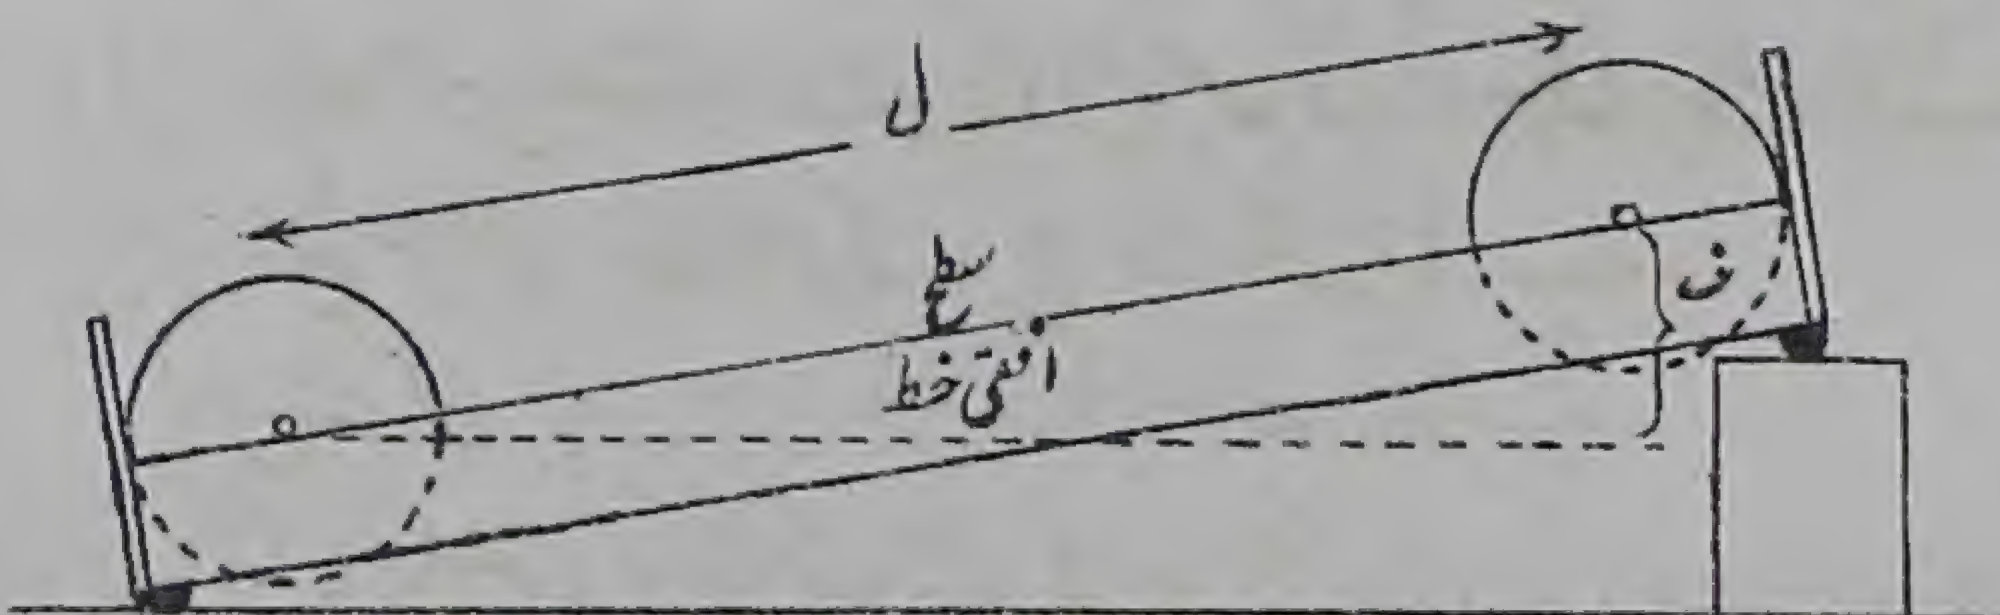 ل
سطح
افقی خط
ف